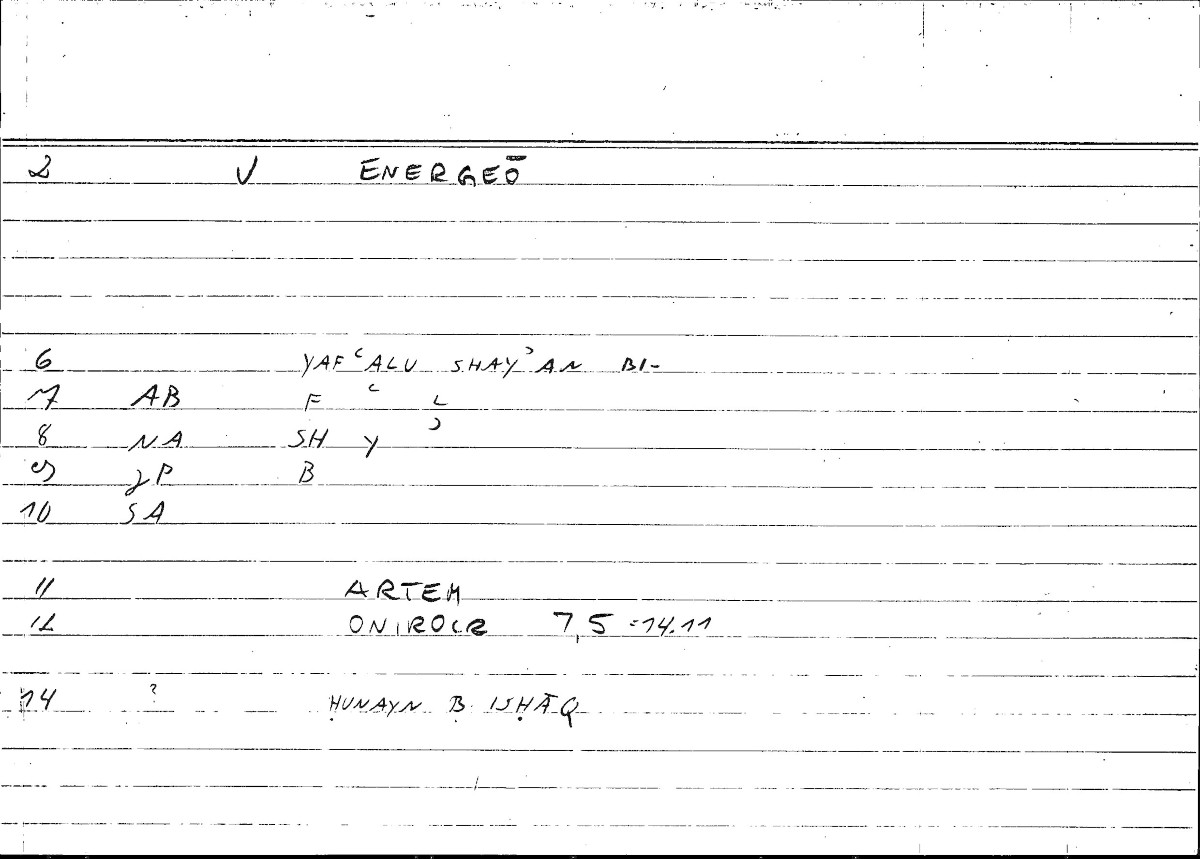 2 V ENERGEŌ
6 YAFʿALU SHAYʾAN BI-
7 AB F ʿ L
8 NA SH Y ʾ
9 JP B
10 SA
11 ARTEM
12 ONIROCR 7,5 =14.11
14 ? ḤUNAYN B ISḤĀQ